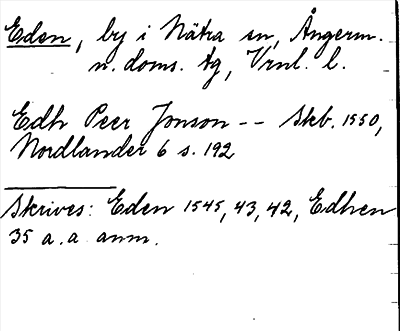 Eden, by i Nätra sn, Ångerm.
n. doms. tg, Vrnl. l.
Edh Peer Jonson -- Skb. 1550,
Nordlander 6 s. 192
Skrives: Eden 1545, 43, 42, Edhen
35 a. a. anm.